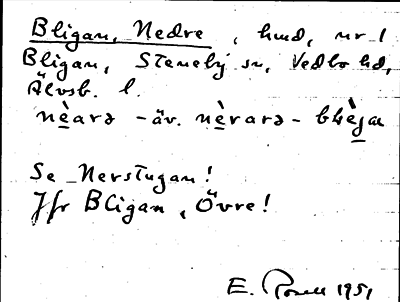 Bligan, Nedre, hmd, nr 1
Bligan, Steneby sn, Vedbo hd,
Älvsb. l.
nèarə - äv. nèrarə - blìga
Se Nerstugan!
Jfr Bligan, Övre!
E. Rosell 1951